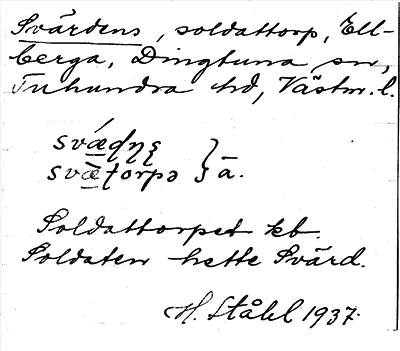 Svärdens, soldattorp, Ell-
berga, Dingtuna sn,
Tuhundra hd, Västm. l.
svǽɖŋ̩ʂ } ā.
svæ̀ʈorpə
Soldattorpet kb.
Soldaten hette Svärd.
H. Ståhl 1937.